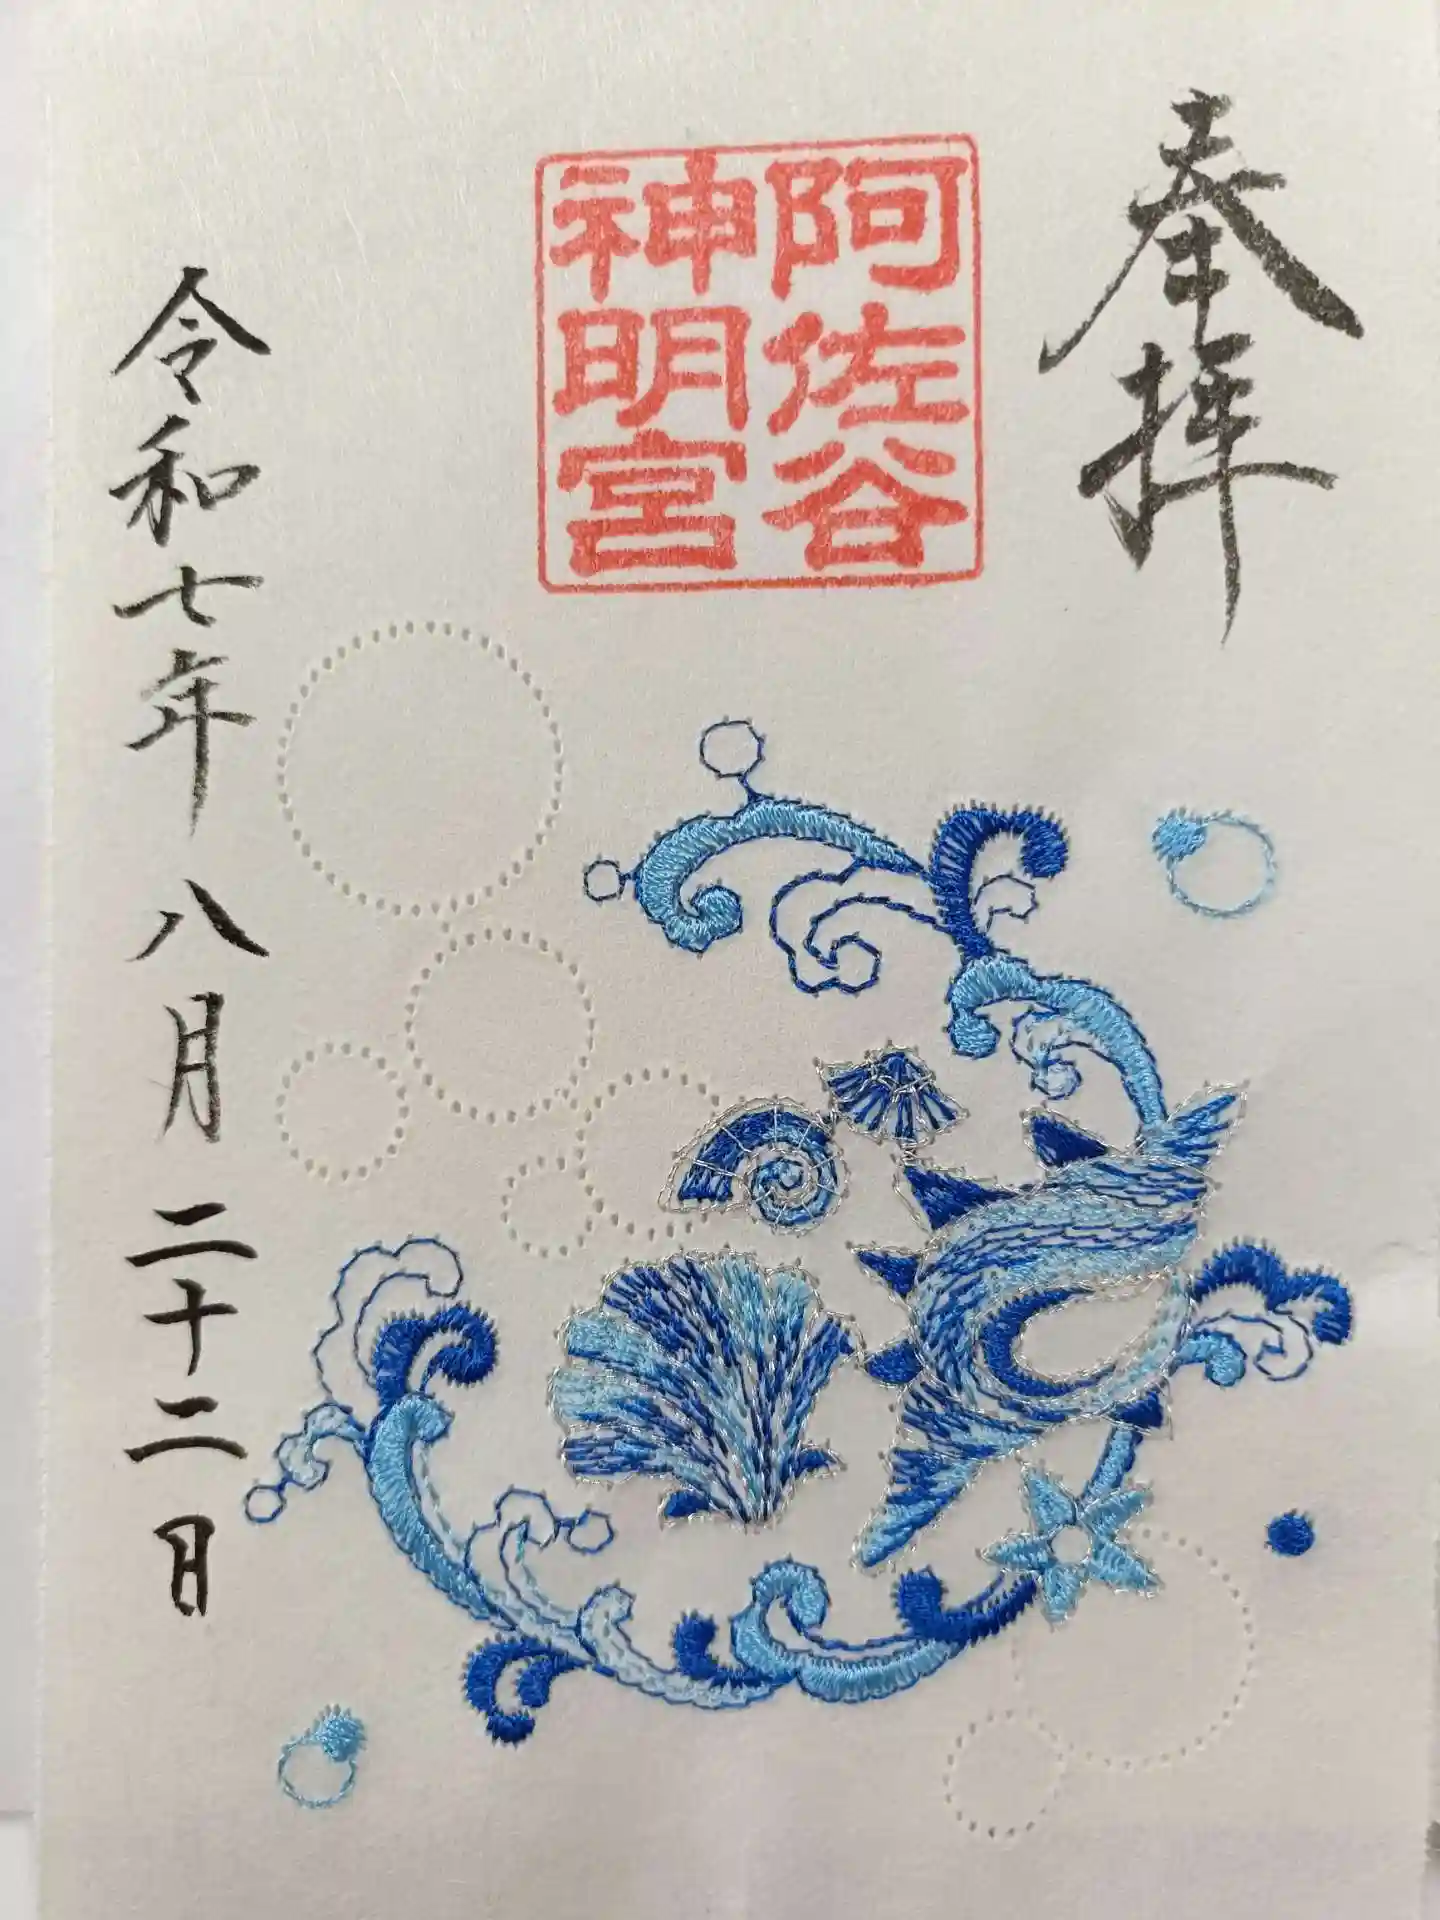 奉拝
阿佐谷
神明宮
令和七年八月二十二日